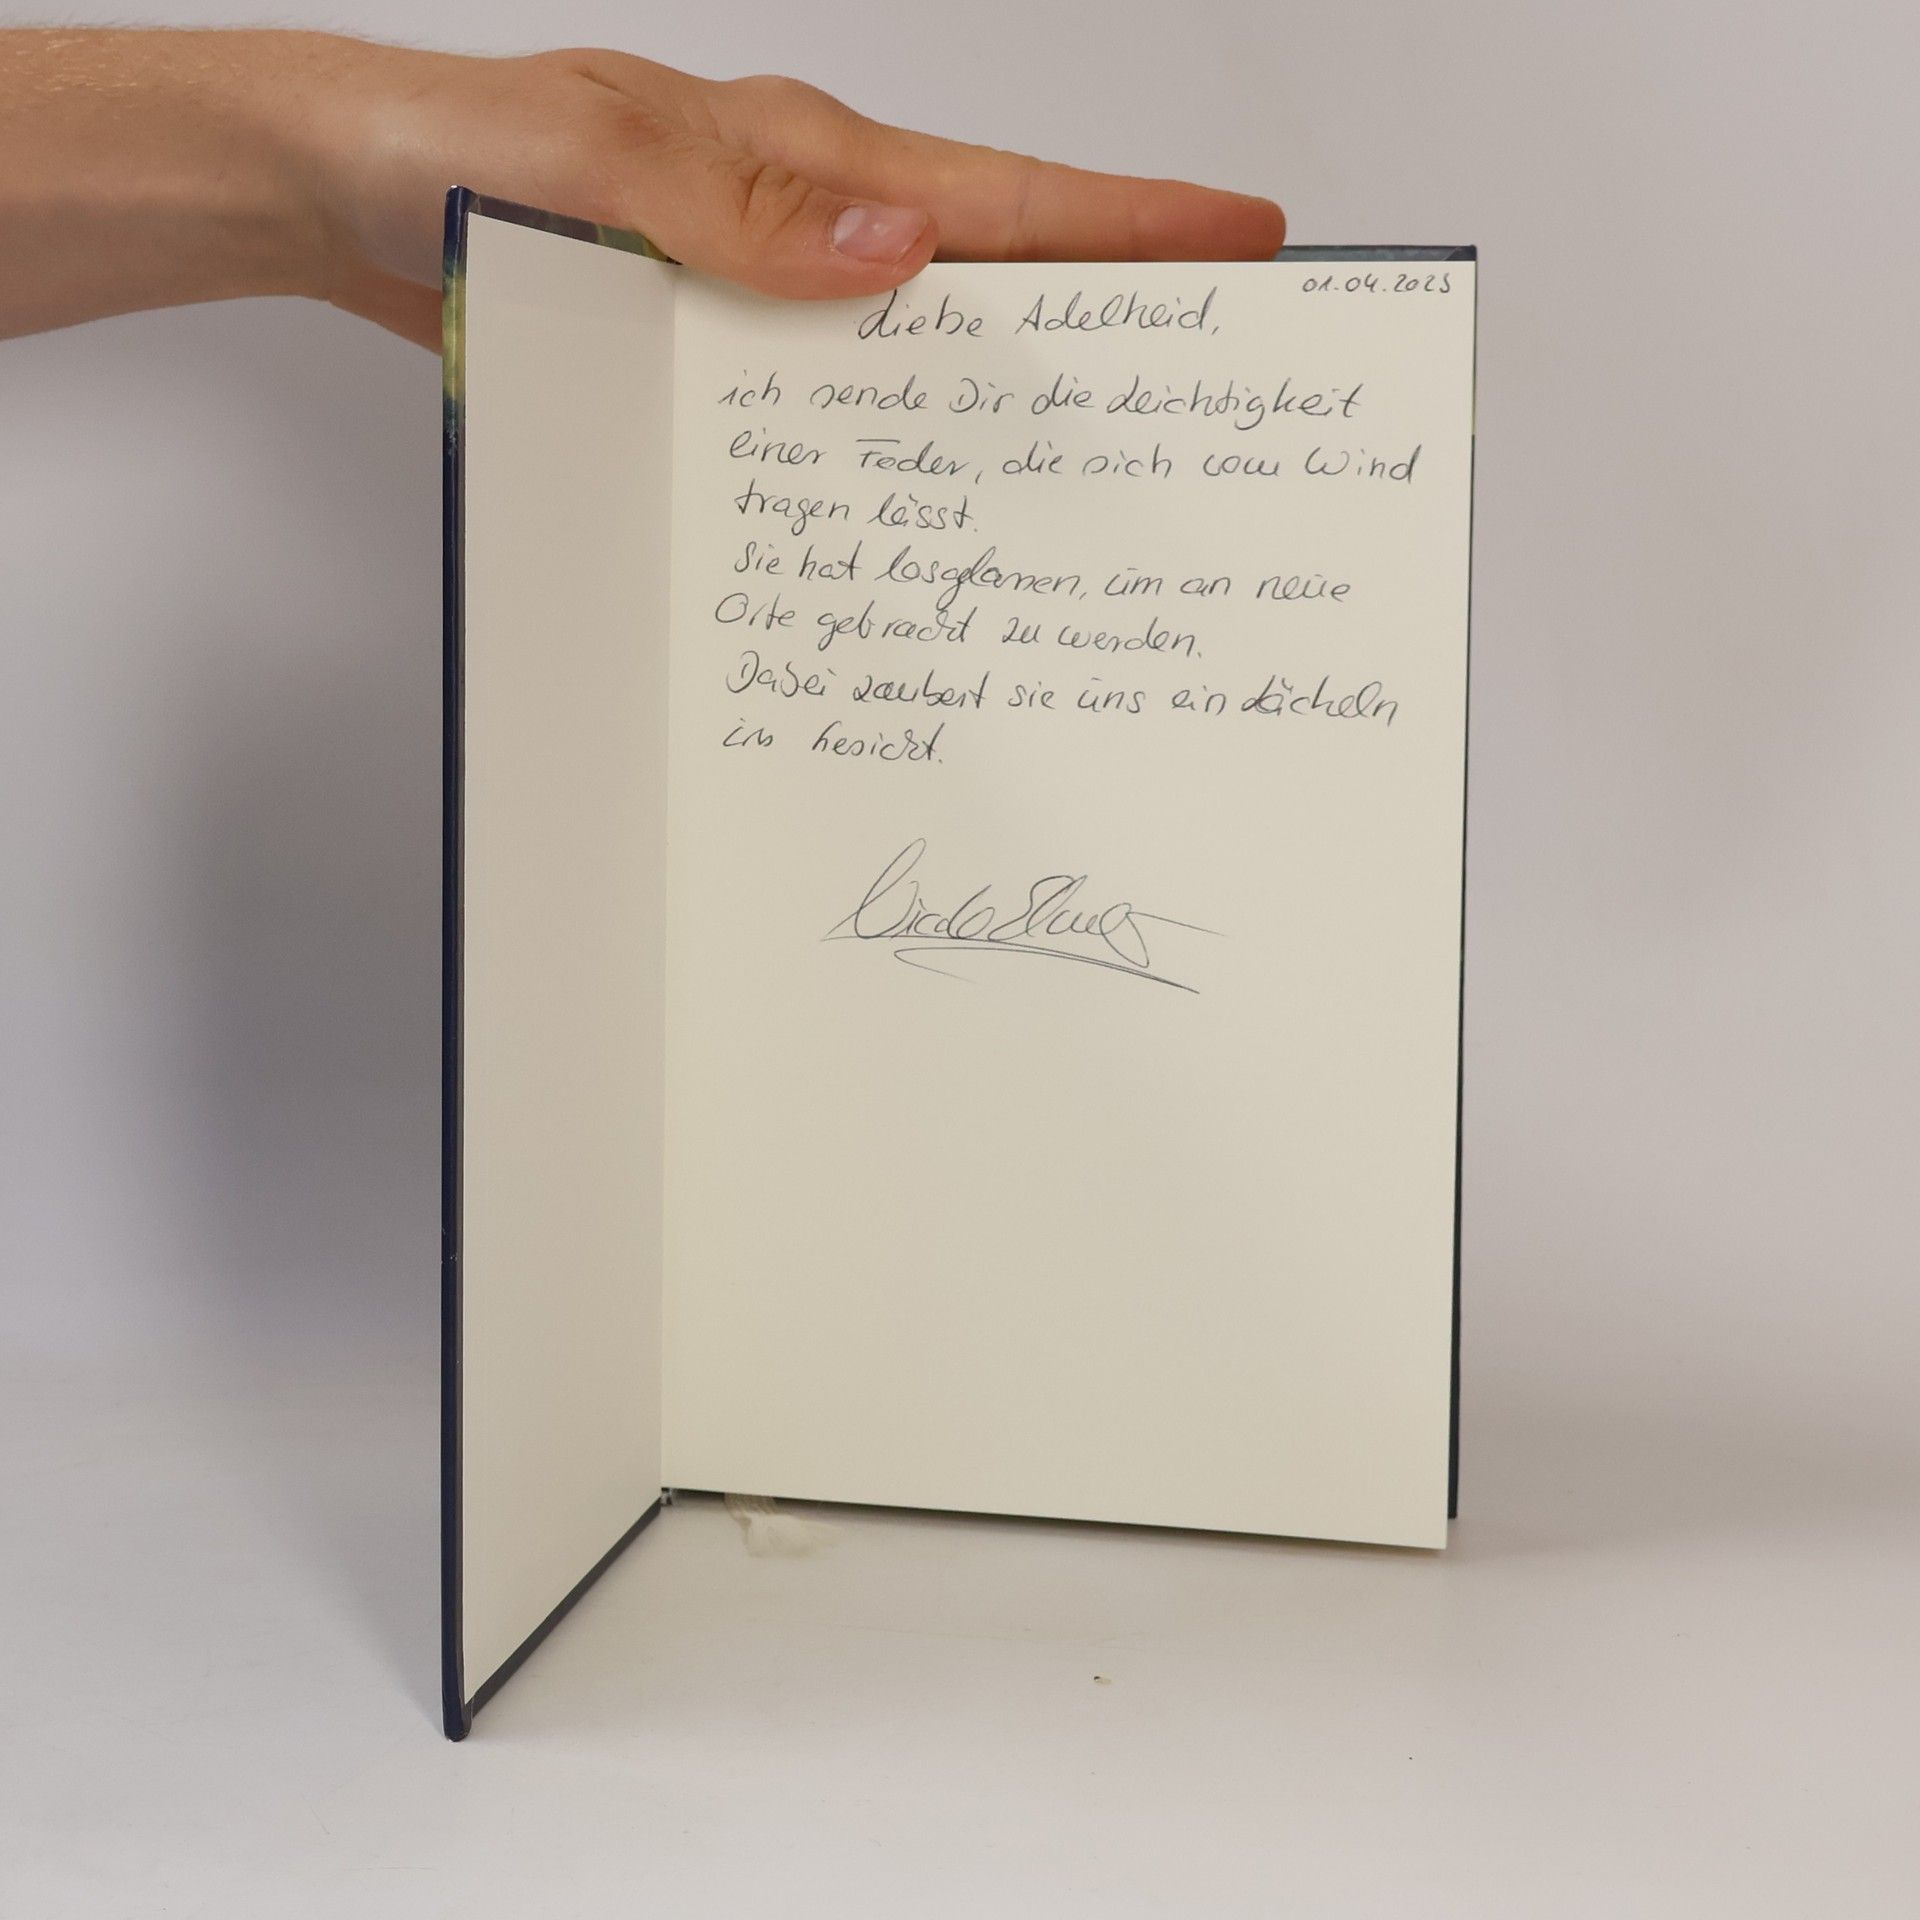 01.04.2023
Liebe Adelheid,
ich sende Dir die Leichtigkeit
einer Feder, die sich vom Wind
tragen lässt.
Sie hat losgelassen, um an neue
Orte gebracht zu werden.
Dabei zaubert sie uns ein Lächeln
ins Gesicht.